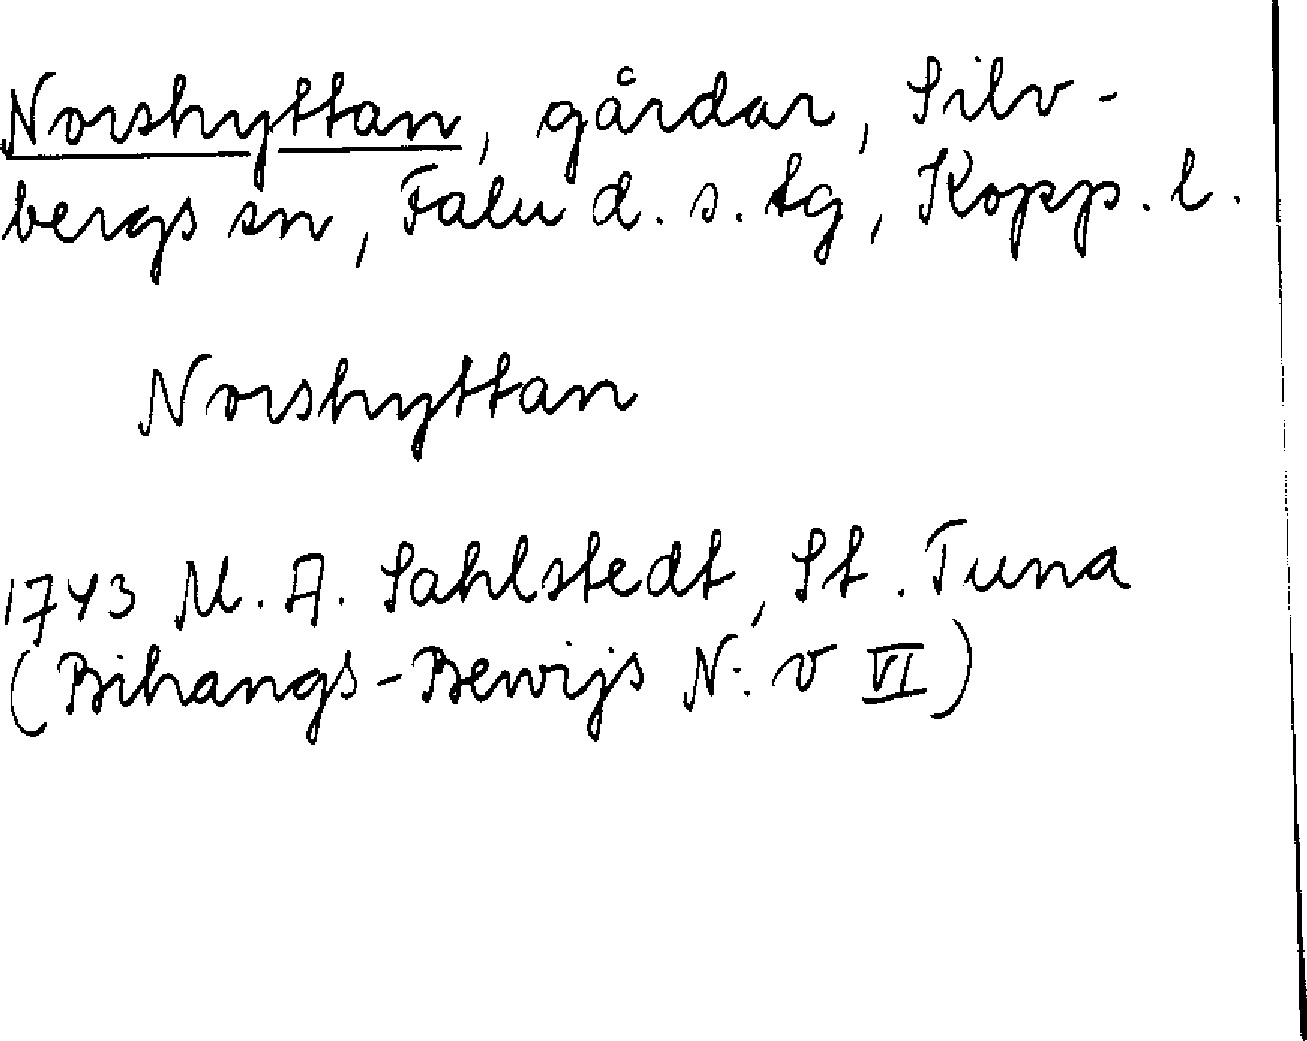 Norshyttan, gårdar, Silv-
bergs sn, Falu d. s. tg, Kopp. l.
Norshyttan
1743 M. A. Sahlstedt, St. Tuna
(Bihangs-Bewijs N:o VI)